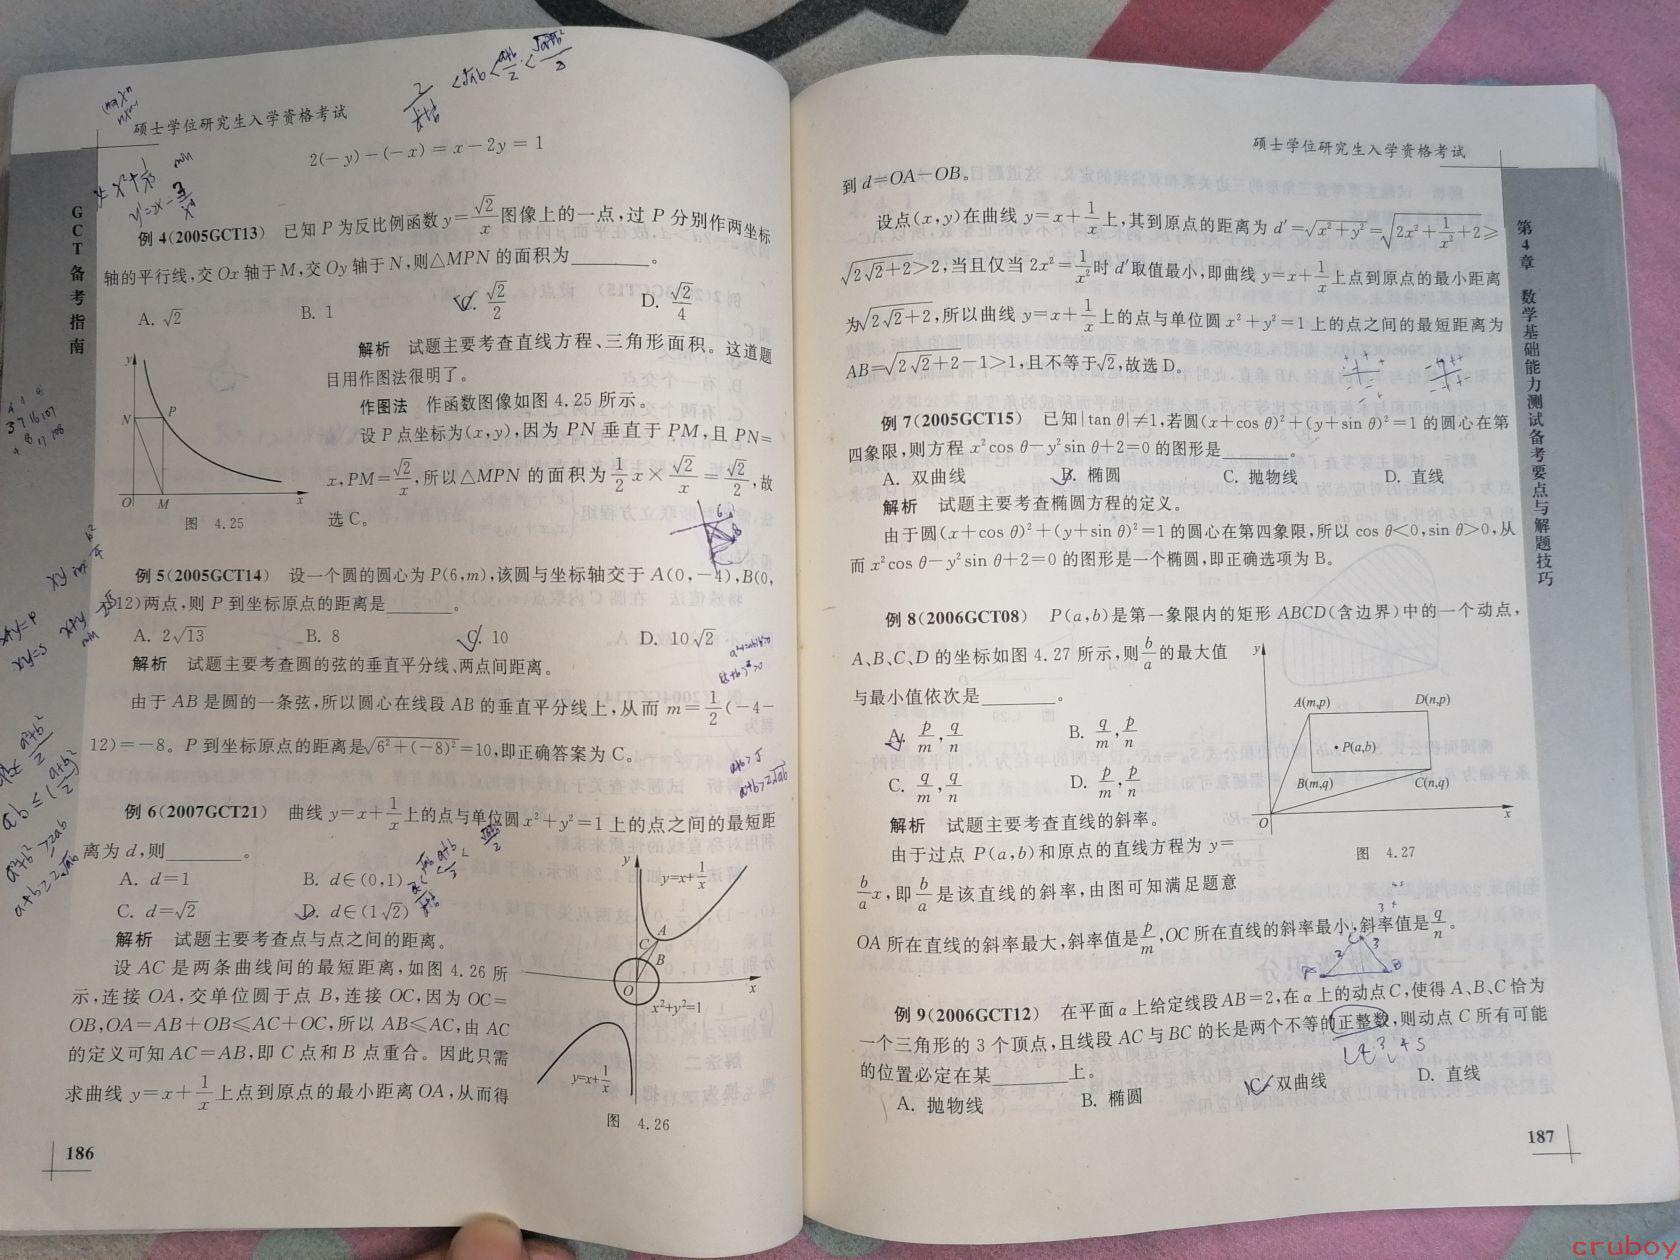 硕士学位研究生入学资格考试
2(-y)-(-x)=x-2y=1
GCT备考指南
例4(2005GCT13) 已知P为反比例函数y=√2/x图像上的一点,过P分别作两坐标
轴的平行线,交Ox轴于M,交Oy轴于N,则△MPN的面积为______。
A. √2 B. 1 C. √2/2 D. √2/4
解析 试题主要考查直线方程、三角形面积。这道题
目用作图法很明了。
作图法 作函数图像如图4.25所示。
设P点坐标为(x,y),因为PN垂直于PM,且PN=
x,PM=√2/x,所以△MPN的面积为1/2 x×√2/x=√2/2,故
选C。
y
N P
O M x
图 4.25
例5(2005GCT14) 设一个圆的圆心为P(6,m),该圆与坐标轴交于A(0,-4),B(0,
12)两点,则P到坐标原点的距离是______。
A. 2√13 B. 8 C. 10 D. 10√2
解析 试题主要考查圆的弦的垂直平分线、两点间距离。
由于AB是圆的一条弦,所以圆心在线段AB的垂直平分线上,从而m=1/2(-4-
12)=-8。P到坐标原点的距离是√6²+(-8)²=10,即正确答案为C。
例6(2007GCT21) 曲线y=x+1/x上的点与单位圆x²+y²=1上的点之间的最短距
离为d,则______。
A. d=1 B. d∈(0,1)
C. d=√2 D. d∈(1√2)
解析 试题主要考查点与点之间的距离。
设AC是两条曲线间的最短距离,如图4.26所
示,连接OA,交单位圆于点B,连接OC,因为OC=
OB,OA=AB+OB≤AC+OC,所以AB≤AC,由AC
的定义可知AC=AB,即C点和B点重合。因此只需
求曲线y=x+1/x上点到原点的最小距离OA,从而得
y
y=x+1/x
A
C
B
O x
x²+y²=1
y=x+1/x
图 4.26
186
硕士学位研究生入学资格考试
第4章 数学基础能力测试备考要点与解题技巧
到d=OA-OB。
设点(x,y)在曲线y=x+1/x上,其到原点的距离为d'=√x²+y²=√2x²+1/x²+2≥
√2√2+2>2,当且仅当2x²=1/x²时d'取值最小,即曲线y=x+1/x上点到原点的最小距离
为√2√2+2,所以曲线y=x+1/x上的点与单位圆x²+y²=1上的点之间的最短距离为
AB=√2√2+2-1>1,且不等于√2,故选D。
例7(2005GCT15) 已知|tan θ|≠1,若圆(x+cos θ)²+(y+sin θ)²=1的圆心在第
四象限,则方程x²cos θ-y²sin θ+2=0的图形是______。
A. 双曲线 B. 椭圆 C. 抛物线 D. 直线
解析 试题主要考查椭圆方程的定义。
由于圆(x+cos θ)²+(y+sin θ)²=1的圆心在第四象限,所以cos θ<0,sin θ>0,从
而x²cos θ-y²sin θ+2=0的图形是一个椭圆,即正确选项为B。
例8(2006GCT08) P(a,b)是第一象限内的矩形ABCD(含边界)中的一个动点,
A、B、C、D的坐标如图4.27所示,则b/a的最大值
与最小值依次是______。
A. p/m,q/n B. q/m,p/n
C. q/m,q/n D. p/m,p/n
y
A(m,p) D(n,p)
P(a,b)
B(m,q) C(n,q)
O x
图 4.27
解析 试题主要考查直线的斜率。
由于过点P(a,b)和原点的直线方程为y=
b/a x,即b/a是该直线的斜率,由图可知满足题意
OA所在直线的斜率最大,斜率值是p/m,OC所在直线的斜率最小,斜率值是q/n。
例9(2006GCT12) 在平面α上给定线段AB=2,在α上的动点C,使得A、B、C恰为
一个三角形的3个顶点,且线段AC与BC的长是两个不等的正整数,则动点C所有可能
的位置必定在某______上。
A. 抛物线 B. 椭圆 C. 双曲线 D. 直线
187
cruboy